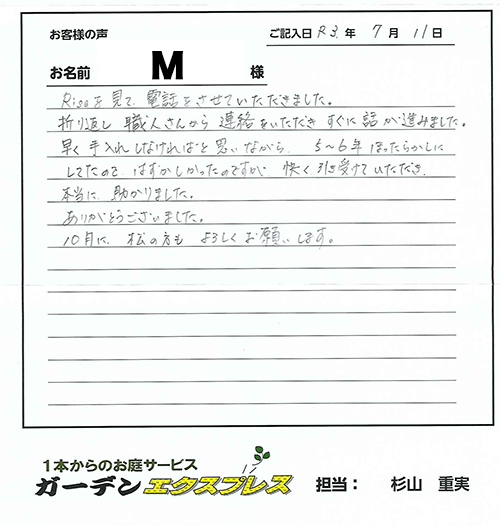 お客様の声
ご記入日 R3. 年 7 月 11 日
お名前 M 様
Riseを見て、電話をさせていただきました。
折り返し 職人さんから 連絡をいただき すぐに 話が進みました。
早く 手入れしなければと 思いながら、5〜6年 ほったらかしに
してたので はずかしかったのですが 快く 引き受けていただき、
本当に 助かりました。
ありがとうございました。
10月に、松の方も よろしくお願いします。
1本からのお庭サービス
ガーデンエクスプレス 担当： 杉山 重実